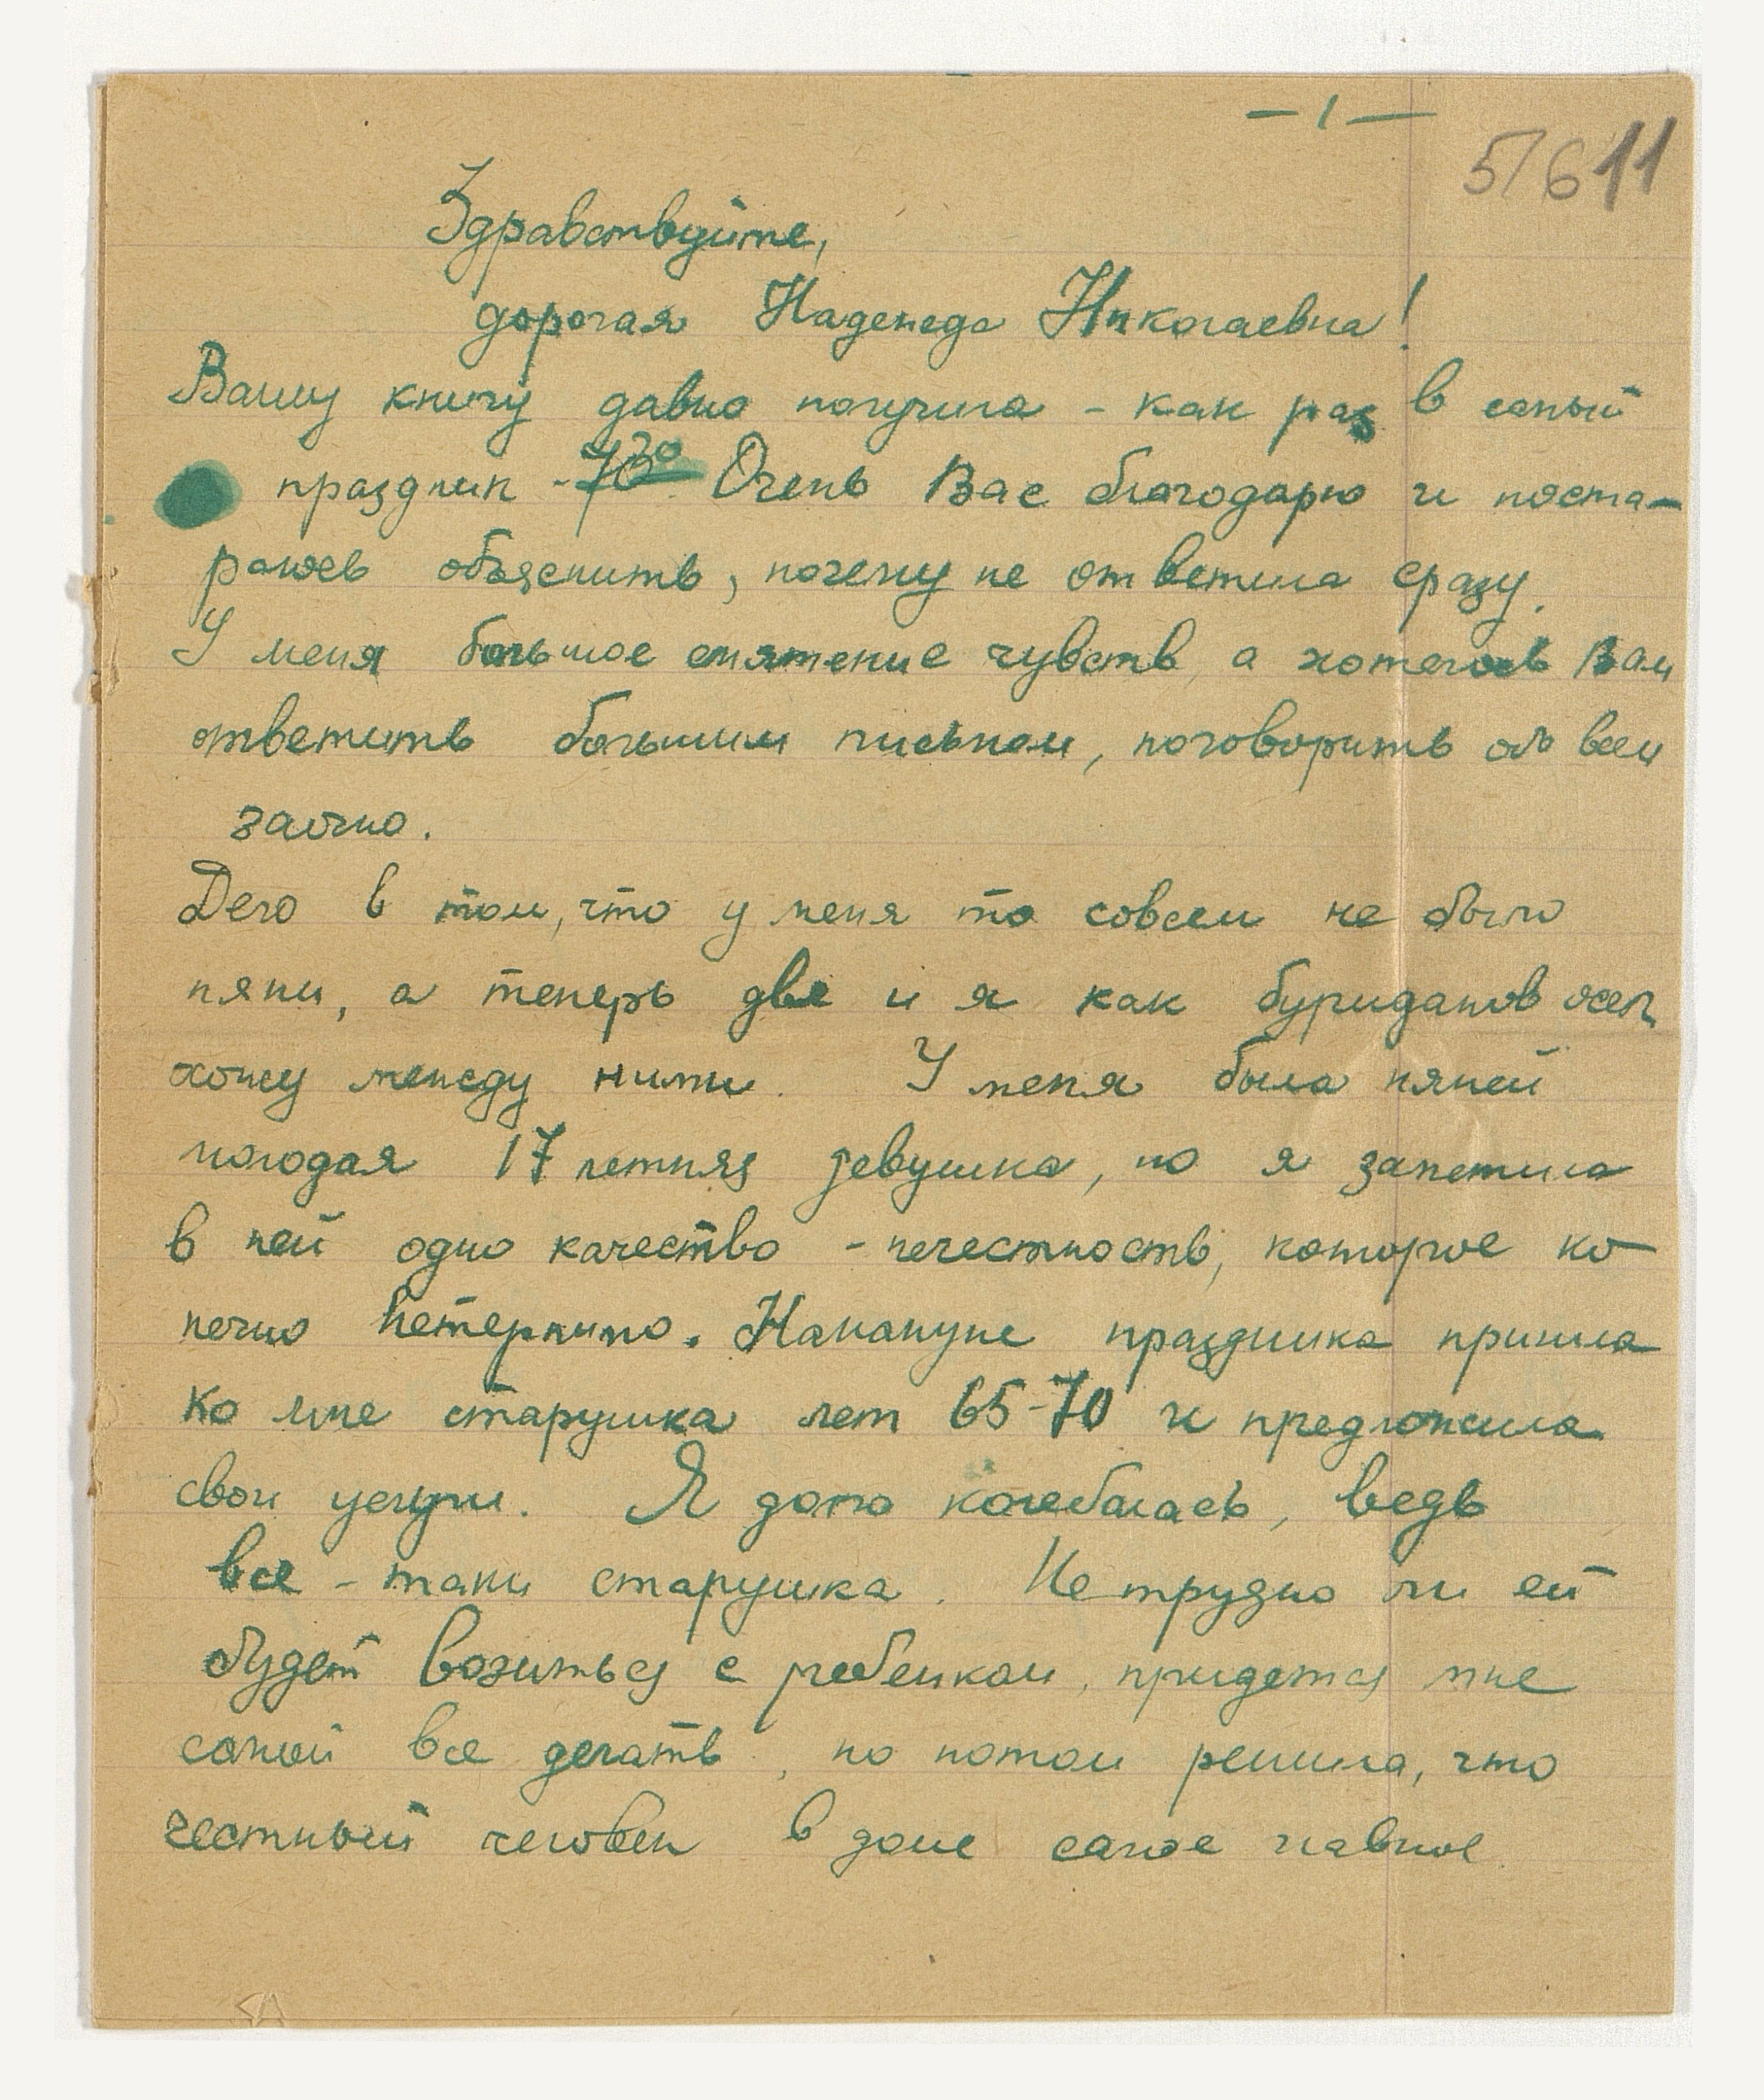 — 1 —
5/6 11
Здравствуйте,
дорогая Надежда Николаевна!
Вашу книгу давно получила - как раз в самый
праздник - 7го. Очень Вас благодарю и поста-
раюсь объяснить, почему не ответила сразу.
У меня большое смятение чувств, а хотелось Вам
ответить большим письмом, поговорить об всем
заочно.
Дело в том, что у меня то совсем не было
няни, а теперь две и я как буриданов осел
хожу между ними. У меня была няней
молодая 17 летняя девушка, но я заметила
в ней одно качество - нечестность, которое ко-
нечно нетерпимо. Накануне праздника пришла
ко мне старушка лет 65-70 и предложила
свои услуги. Я долго колебалась, ведь
все-таки старушка. Не трудно ли ей
будет возиться с ребенком, придется мне
самой все делать, но потом решила, что
честный человек в доме самое главное